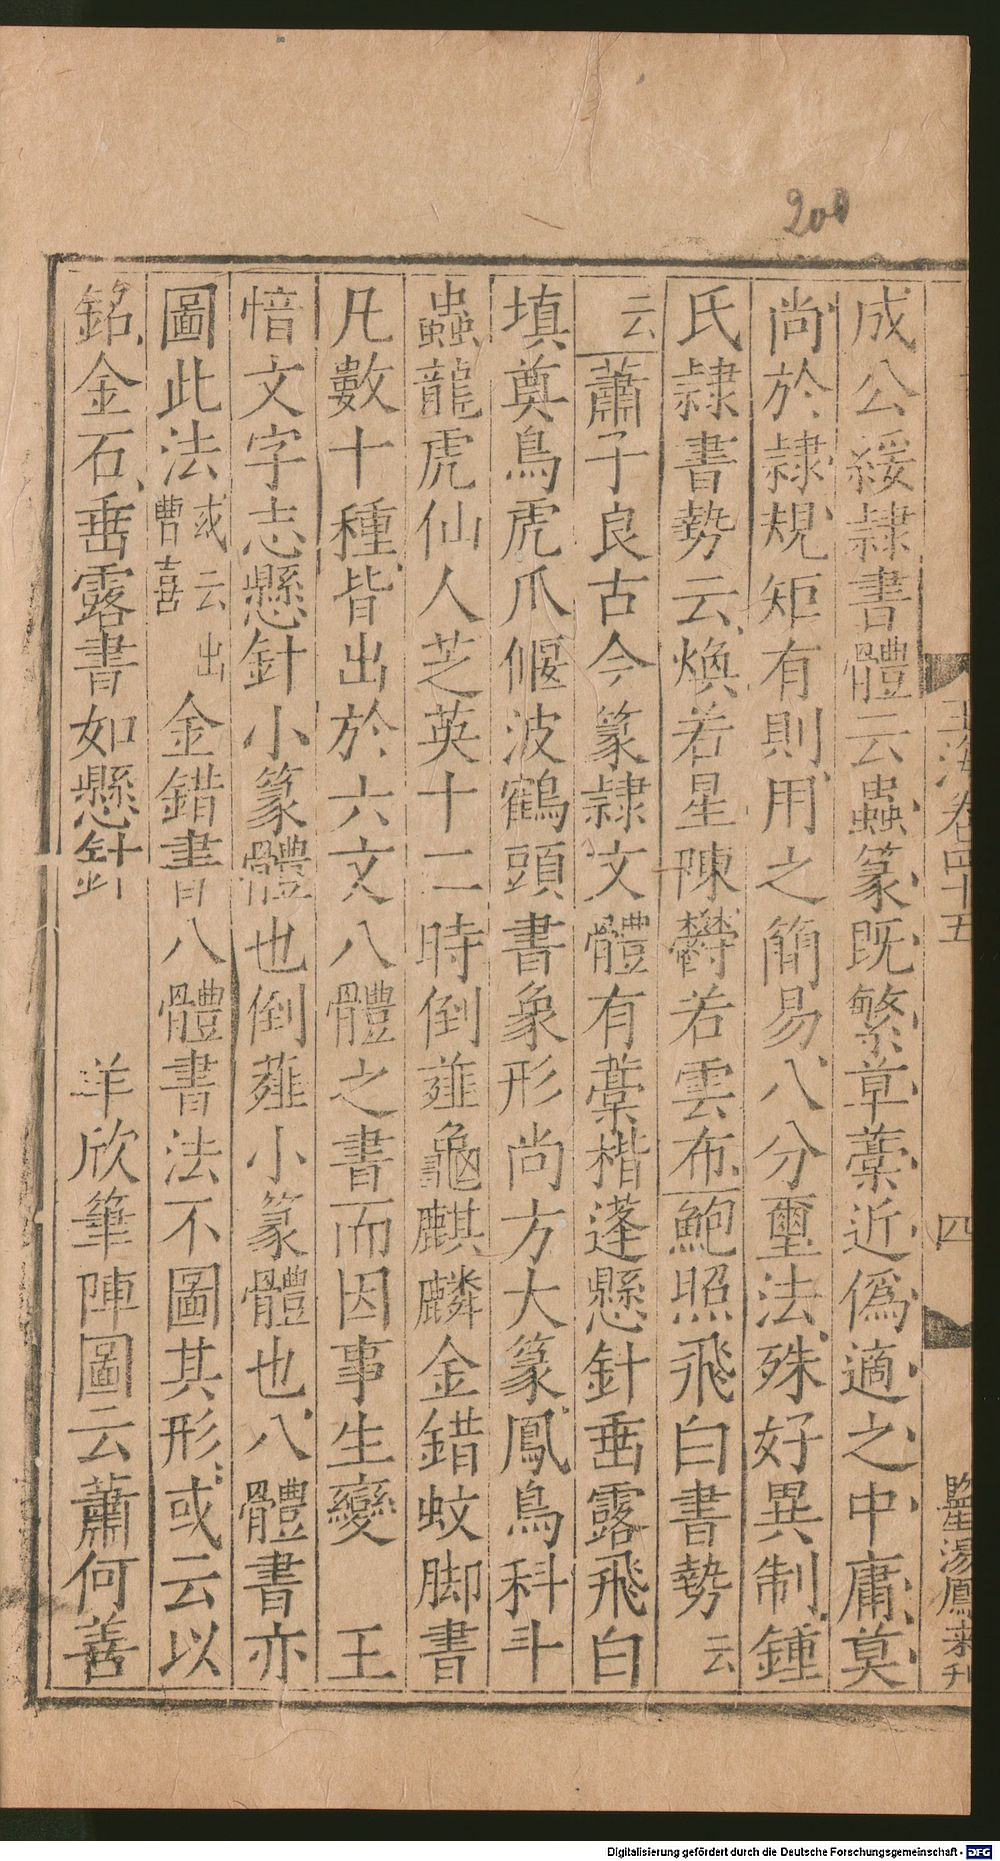 200
玉海卷四十五
四
監湯鳳来刊
成公綏隷書體云蟲篆既繁草藁近僞適之中庸莫
尚於隷規矩有則用之簡易八分璽法殊好異制鍾
氏隷書勢云煥若星陳鬱若雲布鮑照飛白書勢云
云蕭子良古今篆隷文體有藁楷蓬懸針垂露飛白
填奠鳥虎爪偃波鶴頭書象形尚方大篆鳳鳥科斗
蟲龍虎仙人芝英十二時倒薤龜麒麟金錯蚊脚書
凡數十種皆出於六文八體之書而因事生變 王
愔文字志懸針小篆體也倒薤小篆體也八體書亦
圖此法或云出曹喜金錯書八體書法不圖其形或云以
銘金石垂露書如懸針 羊欣筆陣圖云蕭何善
Digitalisierung gefördert durch die Deutsche Forschungsgemeinschaft - DFG